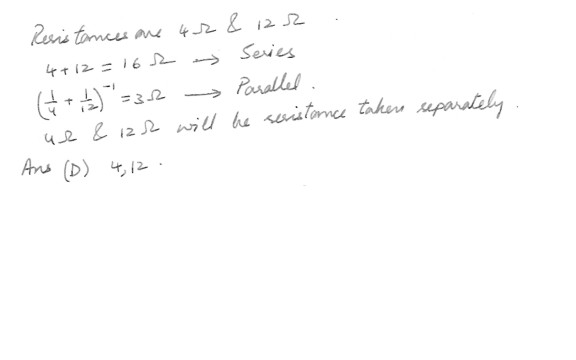 Resistances are 4 Ω & 12 Ω .
4 + 12 = 16 Ω → Series
(1/4 + 1/12)⁻¹ = 3 Ω → Parallel .
4 Ω & 12 Ω will be resistance taken separately .
Ans (D) 4, 12 .